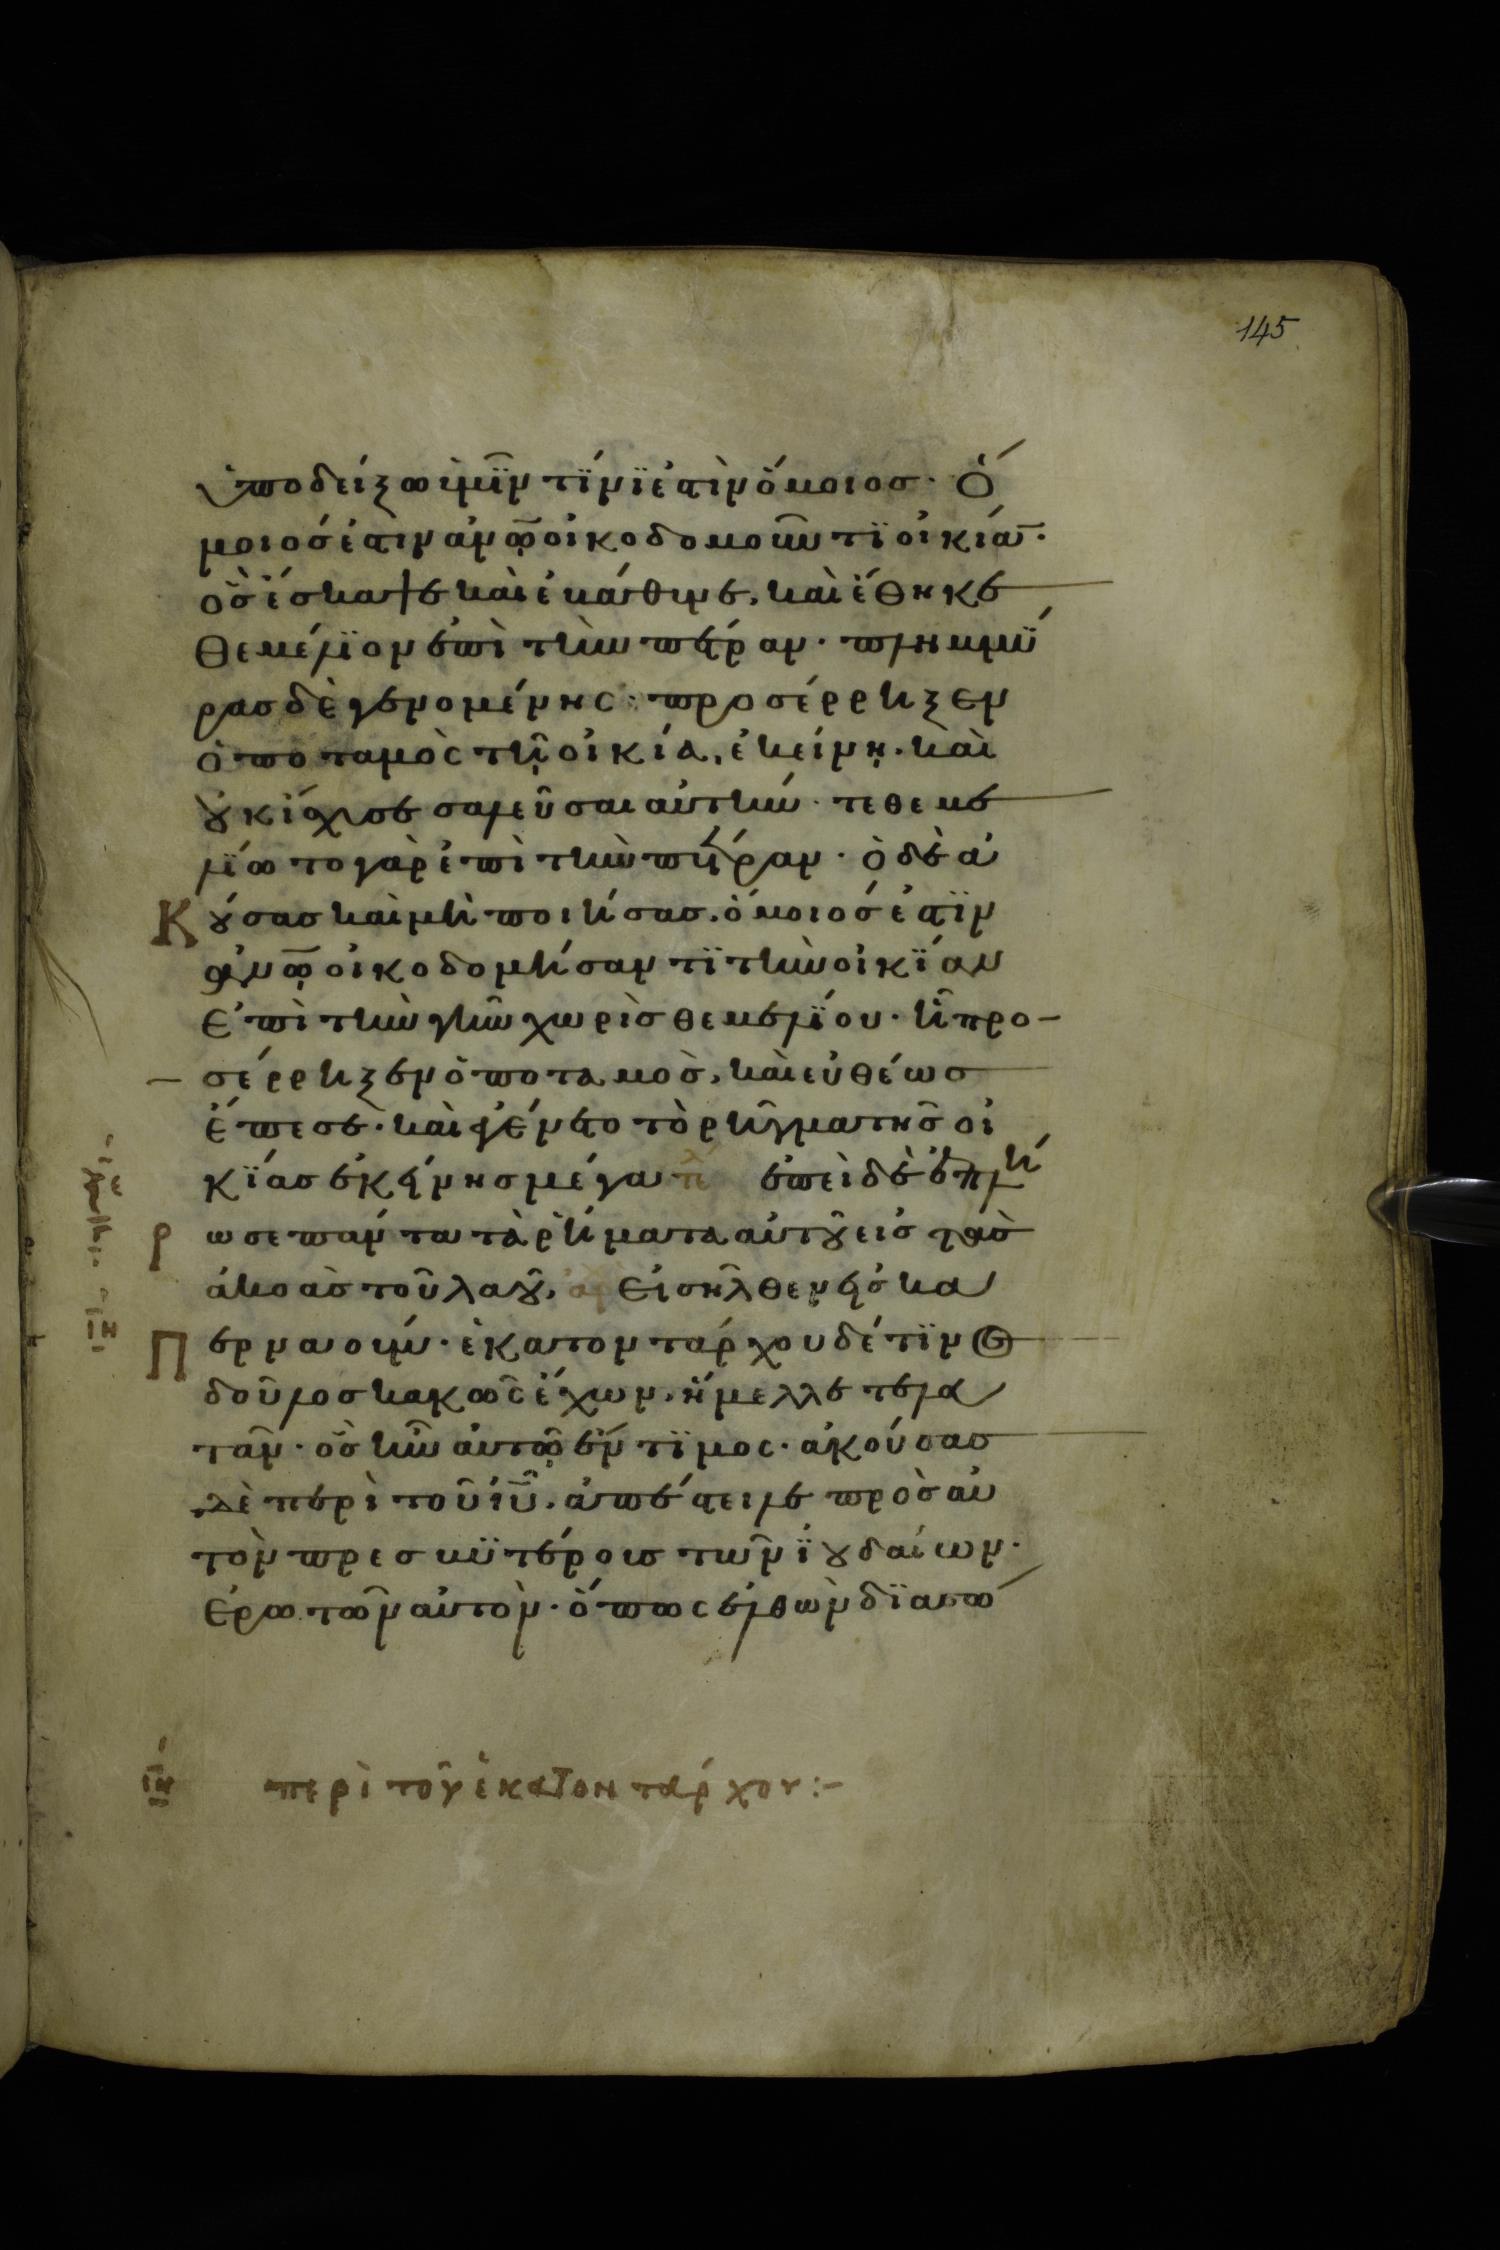 145
ὑποδείξω ὑμῖν τίνι ἐστὶν ὅμοιος· Ὅ
μοιός ἐστιν ἀν̅ω̅ οἰκοδομοῦντι οἰκία̅·
ὃς ἔσκαψε καὶ ἐβάθυνε, καὶ ἔθηκε
θεμέλϊον ἐπὶ τὴν πέτραν· πλημμύ
ρας δὲ γενομένης· προσέρρηξεν
ὁ ποταμὸς τῇ οἰκία, ἐκείνῃ· καὶ
οὐκ ἴσχυσε σαλεῦσαι αὐτήν· τεθεμε
λΐωτο γὰρ ἐπὶ τὴν πέτραν· ὁ δὲ ἀ
Κούσας καὶ μὴ ποιήσας, ὅμοιός ἐστϊν
ἀν̅ω̅ οἰκοδομήσαντϊ τὴν οἰκΐαν
ἐπὶ τὴν γῆν χωρὶς θεμελΐου· ἧ προ–
– σέρρηξεν ὁ ποταμὸς, καὶ εὐθέως
ἔπεσε· καὶ ἐγένετο τὸ ῥῆγμα τῆς οἰ
κΐας ἐκείνης μέγα ἐπεὶ δὲ ἐπλή
Ρωσε πάντα τὰ ῥήματα αὐτοῦ εἰς τὰς
ἀκοὰς τοῦ λαοῦ, εἰσῆλθεν εἰς κα
Περναούμ· ἑκατοντάρχου δέ τϊνος
δοῦλος κακῶς ἔχων, ἤμελλε τελευ
τᾶν· ὃς ἦν αὐτῷ ἔντϊμος· ἀκούσας
δὲ περὶ τοῦ ἰ̅υ̅, ἀπέστειλε πρὸς αὐ
τὸν πρεσβυτέρους τῶν ἰουδαίων·
ἐρωτῶν αὐτὸν· ὅπως ἐλθὼν διασώ
ιη περὶ τοῦ ἑκατοντάρχου :–